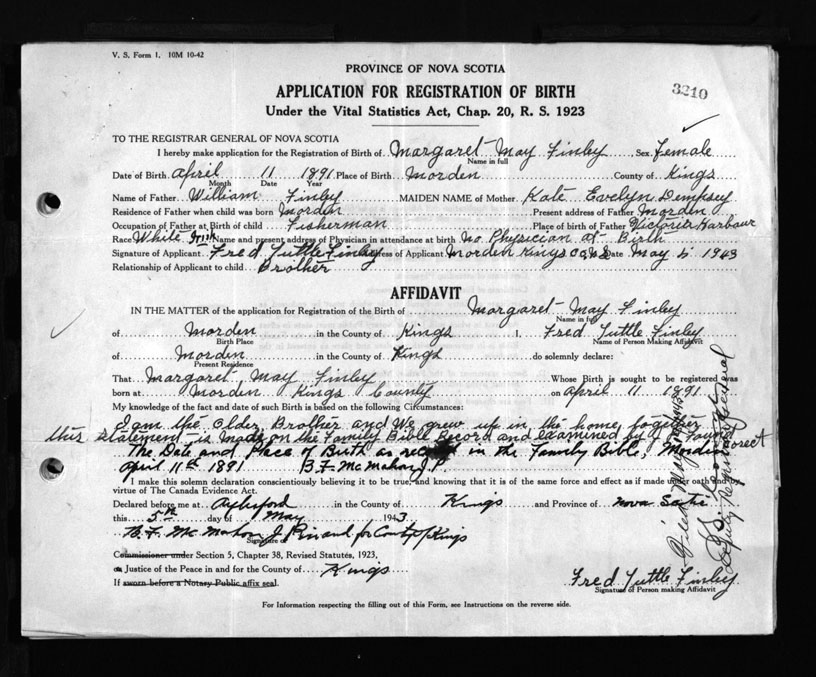 V. S. Form 1. 10M 10-42
PROVINCE OF NOVA SCOTIA
APPLICATION FOR REGISTRATION OF BIRTH
3210
Under the Vital Statistics Act, Chap. 20, R. S. 1923
TO THE REGISTRAR GENERAL OF NOVA SCOTIA
I hereby make application for the Registration of Birth of Margaret May Finley Sex Female
Name in full
Date of Birth April 11 1891 Place of Birth Morden County of Kings
Month Date Year
Name of Father William Finley MAIDEN NAME of Mother Kate Evelyn Dempsey
Residence of Father when child was born Morden Present address of Father Morden
Occupation of Father at Birth of child Fisherman Place of birth of Father Victoria Harbour
Race White Irish Name and present address of Physician in attendance at birth No Physician at Birth
Signature of Applicant Fred Tuttle Finley Address of Applicant Morden Kings Co N.S Date May 5 1943
Relationship of Applicant to child Brother
AFFIDAVIT
IN THE MATTER of the application for Registration of the Birth of Margaret May Finley
Name in full
of Morden in the County of Kings I, Fred Tuttle Finley
Birth Place Name of Person Making Affidavit
of Morden in the County of Kings do solemnly declare:
Present Residence
That Margaret May Finley Whose Birth is sought to be registered was
born at Morden Kings County on April 11 1891
My knowledge of the fact and date of such Birth is based on the following Circumstances:
I am the older Brother and We grew up in the home together
this statement is made on the Family Bible Record and examined by Found
The Date and Place of Birth as in the Family Bible. Morden Correct
April 11th 1891 B. F. McMahon J.P.
I make this solemn declaration conscientiously believing it to be true, and knowing that it is of the same force and effect as if made under oath and by
virtue of The Canada Evidence Act.
Declared before me at Aylesford in the County of Kings and Province of Nova Scotia
this 5th day of May 1943
B. F. McMahon J. P. in and for County of Kings
Signature of
Commissioner under Section 5, Chapter 38, Revised Statutes, 1923,
or Justice of the Peace in and for the County of Kings
If sworn before a Notary Public affix seal.
Fred Tuttle Finley
Signature of Person making Affidavit
For Information respecting the filling out of this Form, see Instructions on the reverse side.
Filed May
Deputy Registrar General